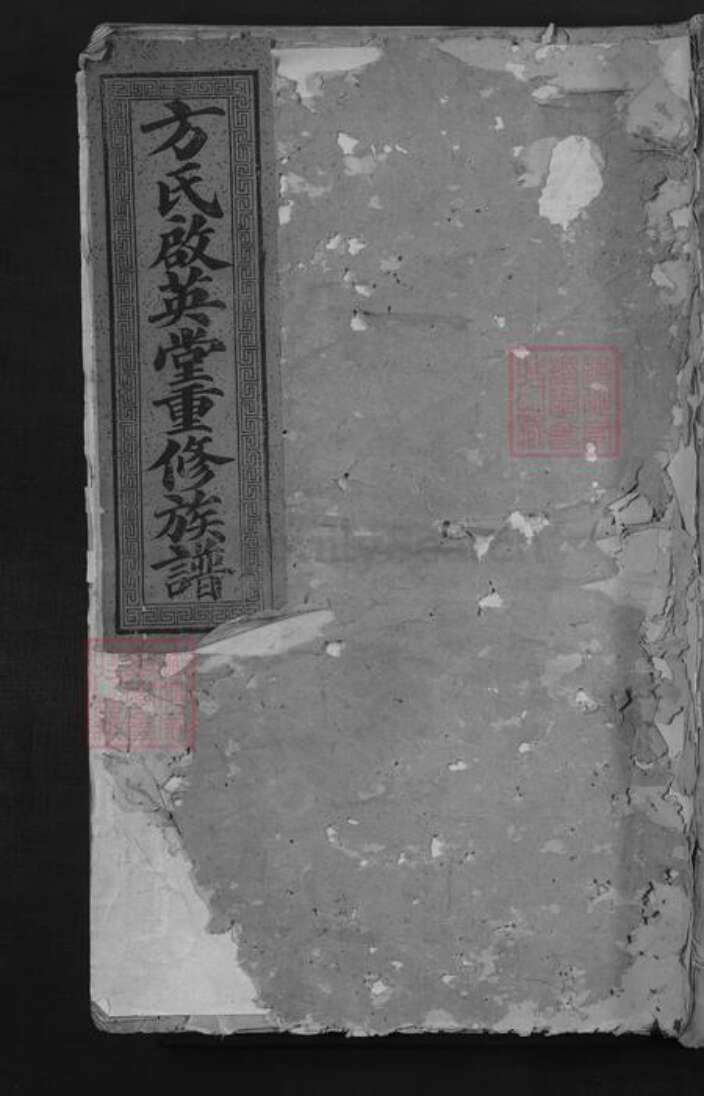 方氏啟英堂重修族譜